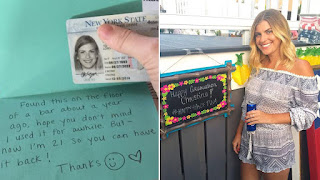 NEW YORK STATE
Found this on the floor
of a bar about a year
ago, hope you don't mind
I used it for awhile. But
now I'm 21 so you can have
it back!
Thanks ☺ ♡
Happy Graduation